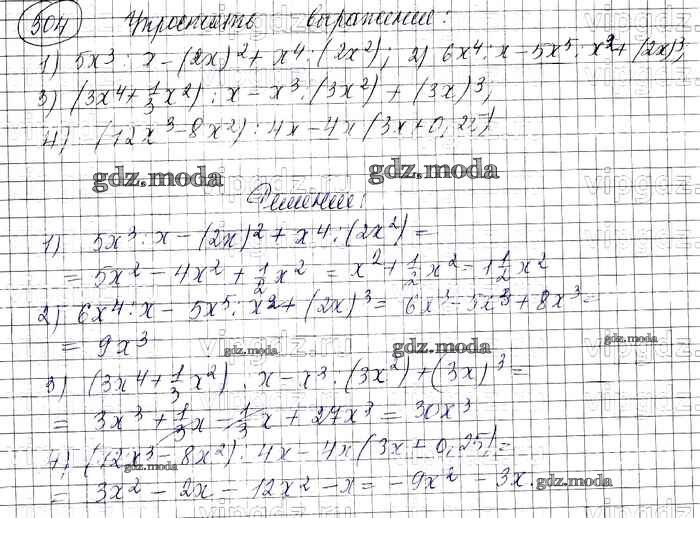 304 Упростить выражение:
1) 5x³ : x – (2x)² + x⁴ : (2x²); 2) 6x⁴ : x – 5x⁵ : x² + (2x)³;
3) (3x⁴ + 1/3 x²) : x – x³ : (3x²) + (3x)³;
4) (12x³ – 8x²) : 4x – 4x (3x + 0,25)
gdz.moda gdz.moda
Решение:
1) 5x³ : x – (2x)² + x⁴ : (2x²) =
= 5x² – 4x² + 1/2 x² = x² + 1/2 x² = 1 1/2 x²
2) 6x⁴ : x – 5x⁵ : x² + (2x)³ = 6x³ – 5x³ + 8x³ =
= 9x³
gdz.moda gdz.moda gdz.moda
3) (3x⁴ + 1/3 x²) : x – x³ : (3x²) + (3x)³ =
= 3x³ + 1/3 x – 1/3 x + 27x³ = 30x³
4) (12x³ – 8x²) : 4x – 4x (3x + 0,25) =
gdz.moda
= 3x² – 2x – 12x² – x = – 9x² – 3x. gdz.moda